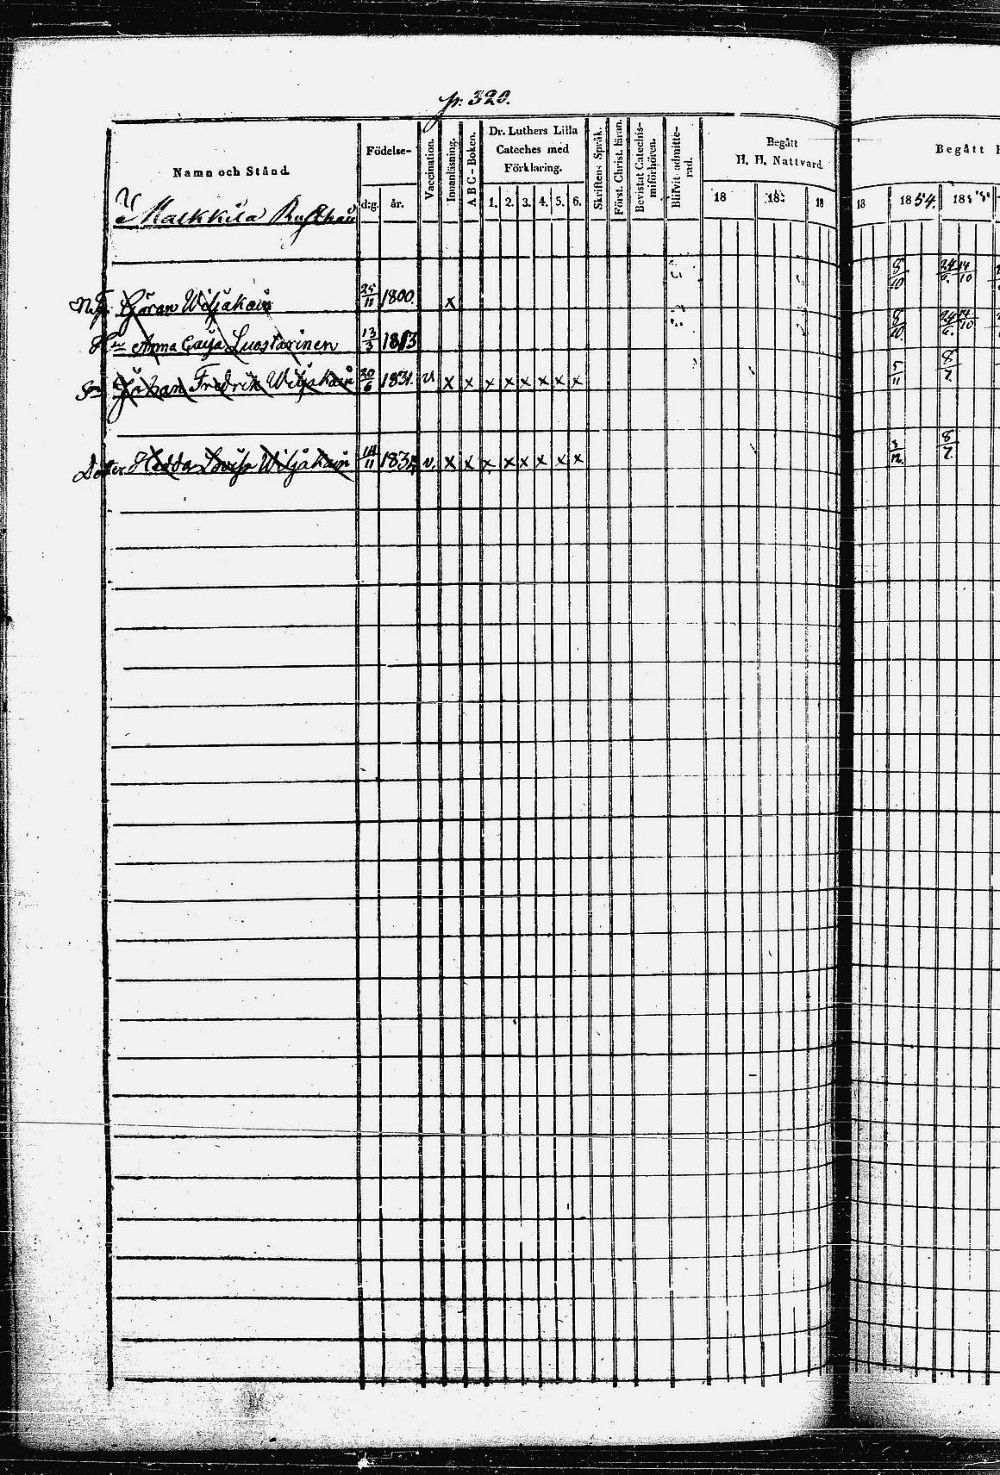 p. 320.
Namn och Stånd.
Födelse-
dag.
år.
Vaccination.
Innanläsning.
ABC-Boken.
Dr. Luthers Lilla
Cateches med
Förklaring.
1. 2. 3. 4. 5. 6.
Skriftens Språk.
Först. Christ. läran.
Bevistat Catechis-
miförhören.
Blifvit admitte-
rad.
Begått
H. H. Nattvard.
18 18 18
Begått
18 1854. 18
Göran Wiljakain 25/11 1800. x 8/10
Anna Caisa Luostarinen 13/3 1813 8/10
Johan Fredrik Wiljakain 20/6 1831. v x x x x x x x x 5/11 8/7.
Dotter Hedda Lovisa Wiljakain 14/11 v. x x x x x x x x 8/7.